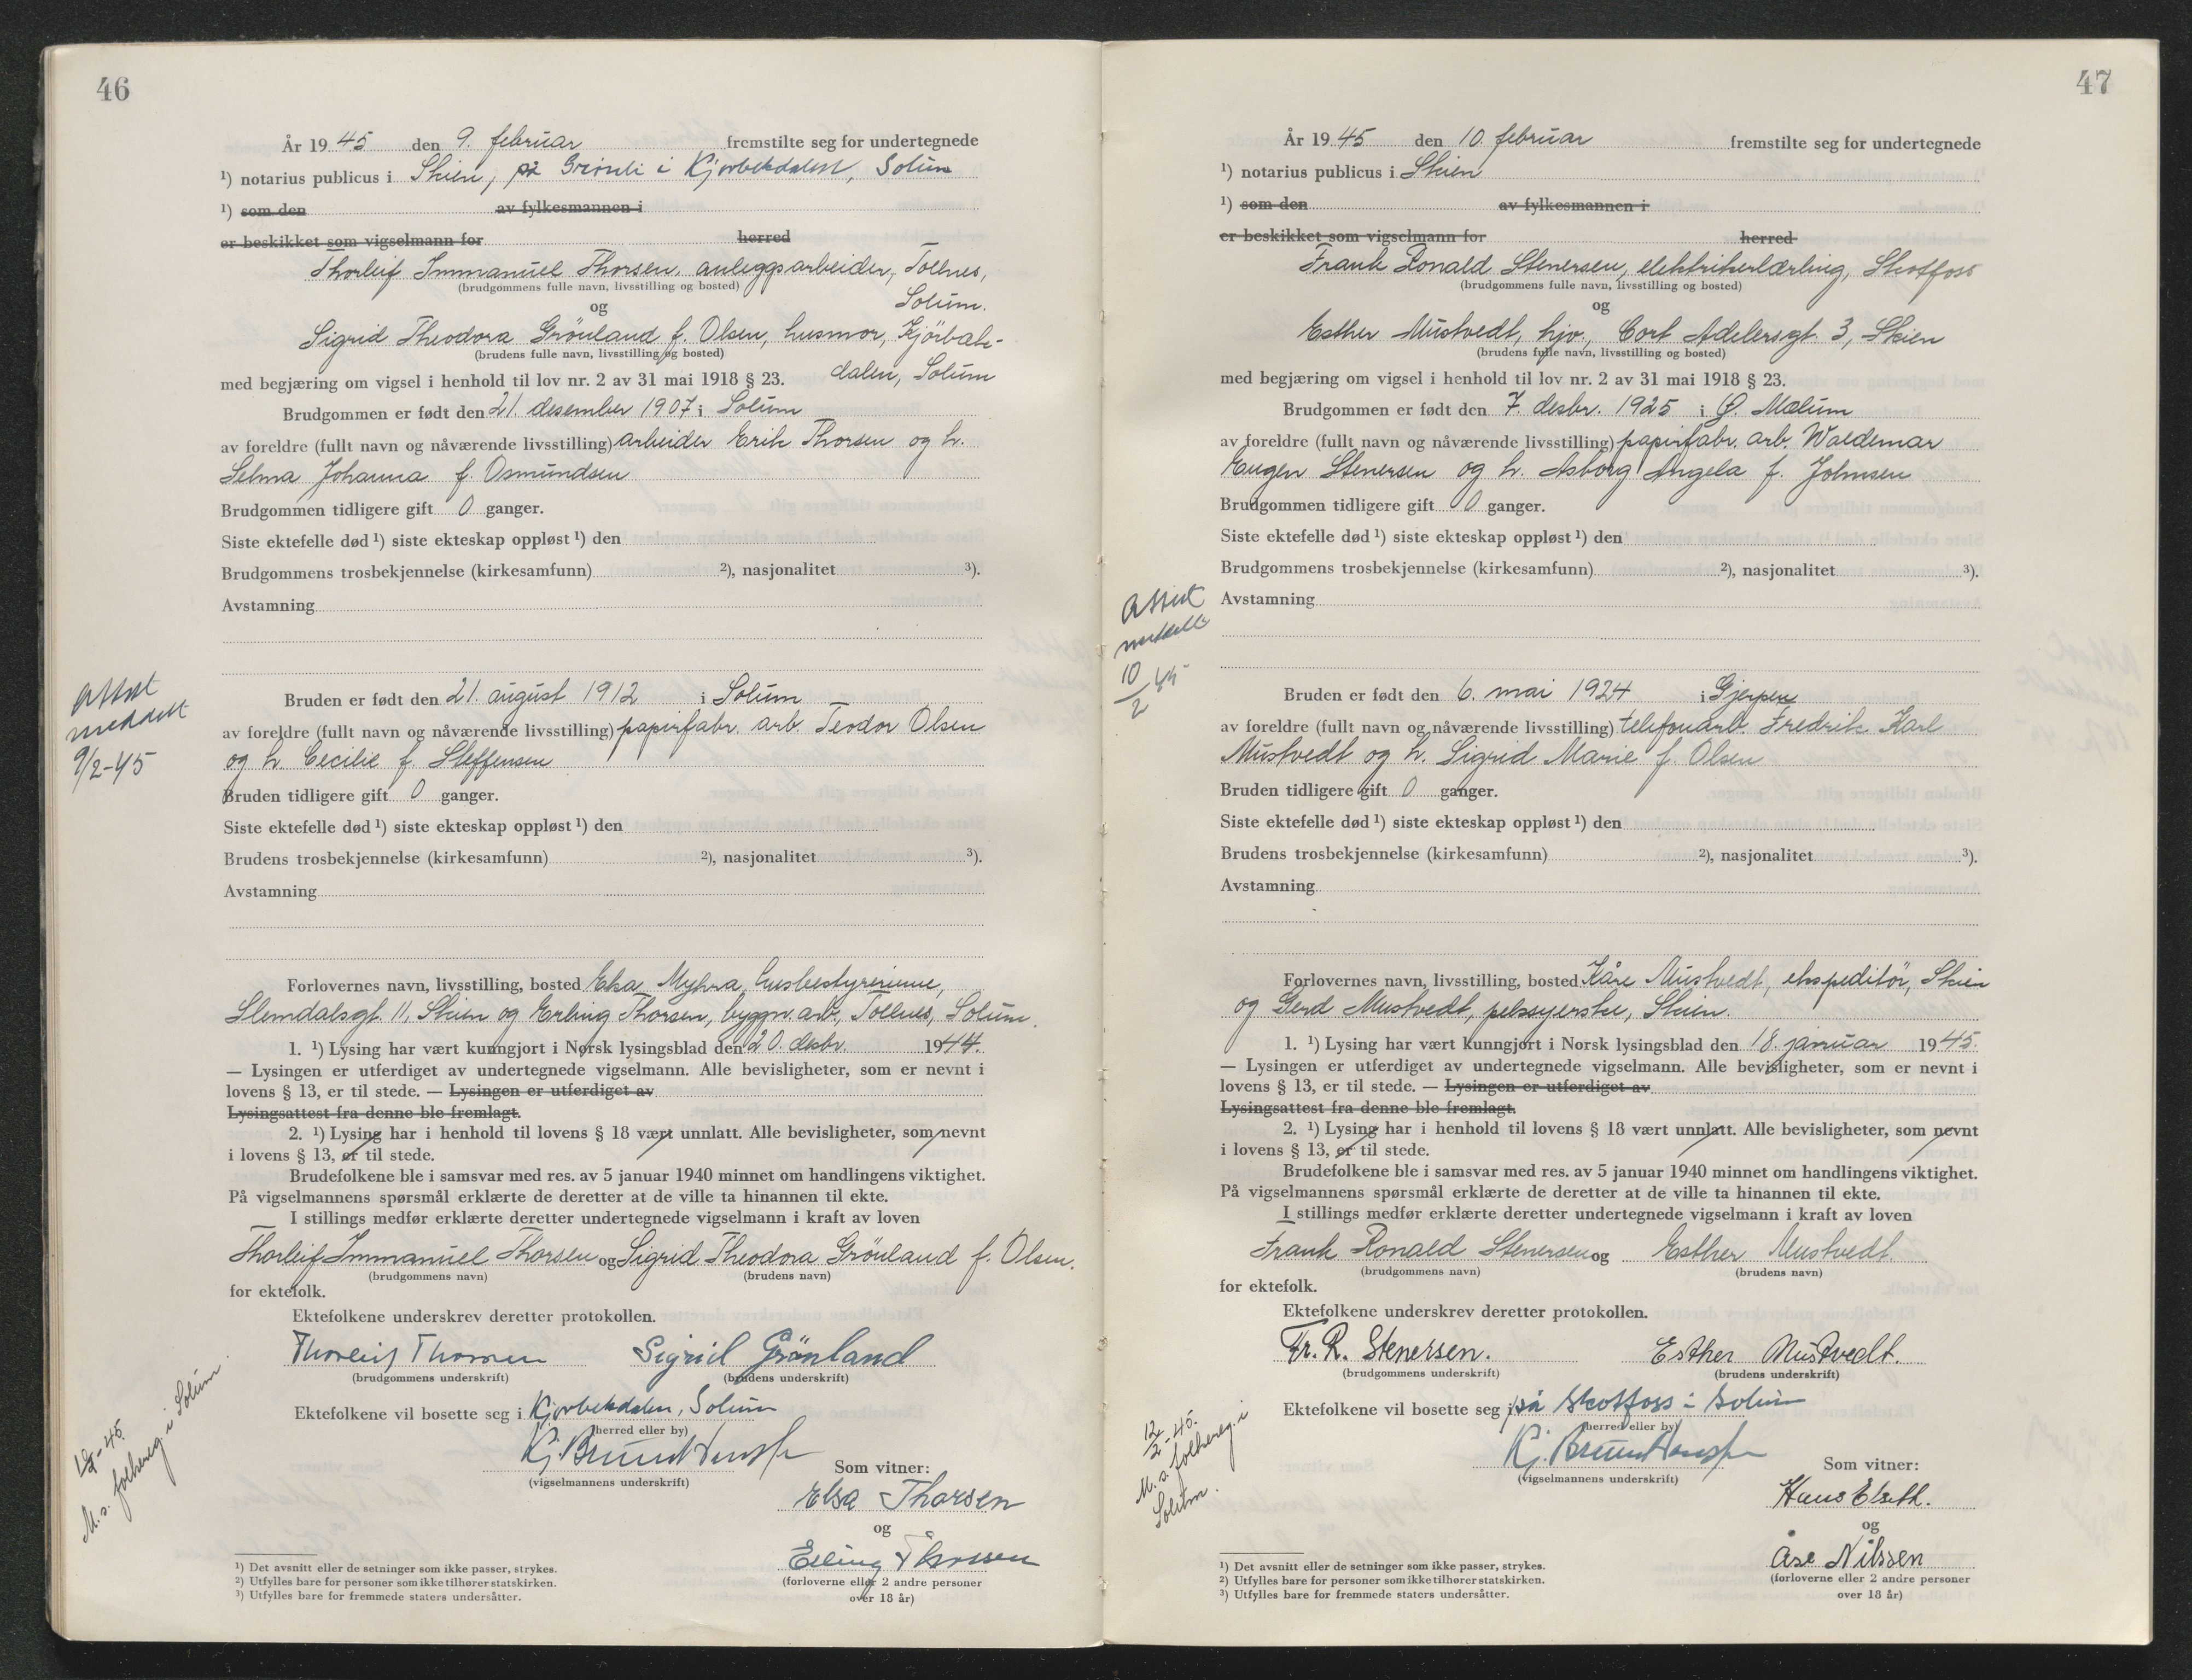 46
År 1945 den 9. februar fremstilte seg for undertegnede
¹) notarius publicus i Skien, på Grönli i Kjørbekdalen, Solum
¹) som den av fylkesmannen i
er beskikket som vigselmann for herred
Thorleif Immanuel Thorsen, anleggsarbeider, Tollnes,
(brudgommens fulle navn, livsstilling og bosted)
Solum.
og
Sigrid Theodora Grönland f. Olsen, husmor, Kjörbäk-
(brudens fulle navn, livsstilling og bosted)
dalen, Solum
med begjæring om vigsel i henhold til lov nr. 2 av 31 mai 1918 § 23.
Brudgommen er født den 21. desember 1907 i Solum
av foreldre (fullt navn og nåværende livsstilling) arbeider Erik Thorsen og h.
Selma Johanna f. Osmundsen
Brudgommen tidligere gift 0 ganger.
Siste ektefelle død ¹) siste ekteskap oppløst ¹) den
Brudgommens trosbekjennelse (kirkesamfunn) ²), nasjonalitet ³).
Avstamning
Attest
meddelt
9/2-45
Bruden er født den 21. august 1912 i Solum
av foreldre (fullt navn og nåværende livsstilling) papirfabr. arb. Teodor Olsen
og h. Cecilie f. Steffensen
Bruden tidligere gift 0 ganger.
Siste ektefelle død ¹) siste ekteskap oppløst ¹) den
Brudens trosbekjennelse (kirkesamfunn) ²), nasjonalitet ³).
Avstamning
Forlovernes navn, livsstilling, bosted Elsa Myhra, husbestyrerinne,
Slemdalsgt. 11, Skien og Erling Thorsen, byggn.arb., Tollnes, Solum.
1. ¹) Lysing har vært kunngjort i Norsk lysingsblad den 20. desbr. 1944.
— Lysingen er utferdiget av undertegnede vigselmann. Alle bevisligheter, som er nevnt i
lovens § 13, er til stede. — Lysingen er utferdiget av
Lysingsattest fra denne ble fremlagt.
2. ¹) Lysing har i henhold til lovens § 18 vært unnlatt. Alle bevisligheter, som nevnt
i lovens § 13, er til stede.
Brudefolkene ble i samsvar med res. av 5 januar 1940 minnet om handlingens viktighet.
På vigselmannens spørsmål erklærte de deretter at de ville ta hinannen til ekte.
I stillings medfør erklærte deretter undertegnede vigselmann i kraft av loven
Thorleif Immanuel Thorsen og Sigrid Theodora Grönland f. Olsen.
(brudgommens navn) (brudens navn)
for ektefolk.
Ektefolkene underskrev deretter protokollen.
Thorleif Thorsen Sigrid Grönland
(brudgommens underskrift) (brudens underskrift)
Ektefolkene vil bosette seg i Kjørbekdalen, Solum
(herred eller by)
(vigselmannens underskrift)
Som vitner:
Elsa Thorsen
og
Erling Thorsen
(forloverne eller 2 andre personer
over 18 år)
-45.
M. s. folkereg. i Solum
¹) Det avsnitt eller de setninger som ikke passer, strykes.
²) Utfylles bare for personer som ikke tilhører statskirken.
³) Utfylles bare for fremmede staters undersåtter.
47
År 1945 den 10. februar fremstilte seg for undertegnede
¹) notarius publicus i Skien
¹) som den av fylkesmannen i
er beskikket som vigselmann for herred
Frank Ronald Stenersen, elektrikerlærling, Skotfoss
(brudgommens fulle navn, livsstilling og bosted)
og
Esther Mustvedt, hjv., Cort Adelersgt. 3, Skien
(brudens fulle navn, livsstilling og bosted)
med begjæring om vigsel i henhold til lov nr. 2 av 31 mai 1918 § 23.
Brudgommen er født den 7. desbr. 1925 i Ø. Mælum
av foreldre (fullt navn og nåværende livsstilling) papirfabr. arb. Waldemar
Eugen Stenersen og h. Asborg Angela f. Johnsen
Brudgommen tidligere gift 0 ganger.
Siste ektefelle død ¹) siste ekteskap oppløst ¹) den
Brudgommens trosbekjennelse (kirkesamfunn) ²), nasjonalitet ³).
Avstamning
Attest
meddelt
10/2 45
Bruden er født den 6. mai 1924 i Gjerpen
av foreldre (fullt navn og nåværende livsstilling) telefonarb. Fredrik Karl
Mustvedt og h. Sigrid Marie f. Olsen
Bruden tidligere gift 0 ganger.
Siste ektefelle død ¹) siste ekteskap oppløst ¹) den
Brudens trosbekjennelse (kirkesamfunn) ²), nasjonalitet ³).
Avstamning
Forlovernes navn, livsstilling, bosted Kåre Mustvedt, ekspeditör, Skien
og Gerd Mustvedt, pelssyerske, Skien.
1. ¹) Lysing har vært kunngjort i Norsk lysingsblad den 18. januar 1945.
— Lysingen er utferdiget av undertegnede vigselmann. Alle bevisligheter, som er nevnt i
lovens § 13, er til stede. — Lysingen er utferdiget av
Lysingsattest fra denne ble fremlagt.
2. ¹) Lysing har i henhold til lovens § 18 vært unnlatt. Alle bevisligheter, som nevnt
i lovens § 13, er til stede.
Brudefolkene ble i samsvar med res. av 5 januar 1940 minnet om handlingens viktighet.
På vigselmannens spørsmål erklærte de deretter at de ville ta hinannen til ekte.
I stillings medfør erklærte deretter undertegnede vigselmann i kraft av loven
Frank Ronald Stenersen og Esther Mustvedt.
(brudgommens navn) (brudens navn)
for ektefolk.
Ektefolkene underskrev deretter protokollen.
Fr. R. Stenersen. Esther Mustvedt.
(brudgommens underskrift) (brudens underskrift)
Ektefolkene vil bosette seg i på Skotfoss i Solum
(herred eller by)
(vigselmannens underskrift)
Som vitner:
Hans Elseth.
og
Åse Nilssen
(forloverne eller 2 andre personer
over 18 år)
12/2-45.
M. s. folkereg. i
Solum.
¹) Det avsnitt eller de setninger som ikke passer, strykes.
²) Utfylles bare for personer som ikke tilhører statskirken.
³) Utfylles bare for fremmede staters undersåtter.